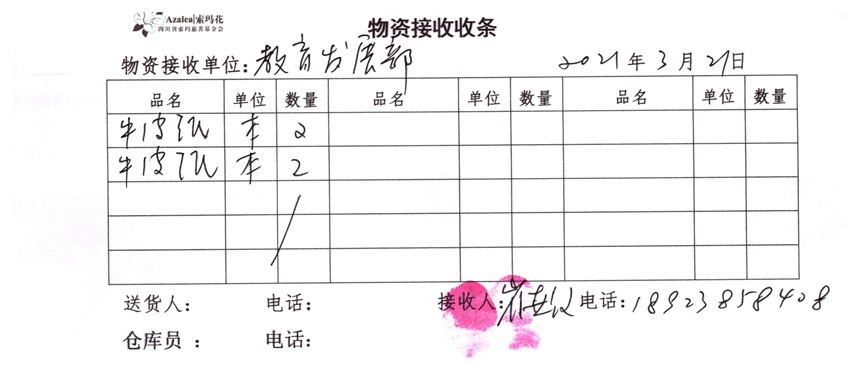 Azalea|索玛花
四川省索玛慈善基金会
物资接收收条
物资接收单位:教育发展部 2021年3月21日
品名 单位 数量 品名 单位 数量 品名 单位 数量
牛皮纸 本 2
牛皮纸 本 2
送货人: 电话: 接收人: 电话:18923858408
仓库员: 电话: